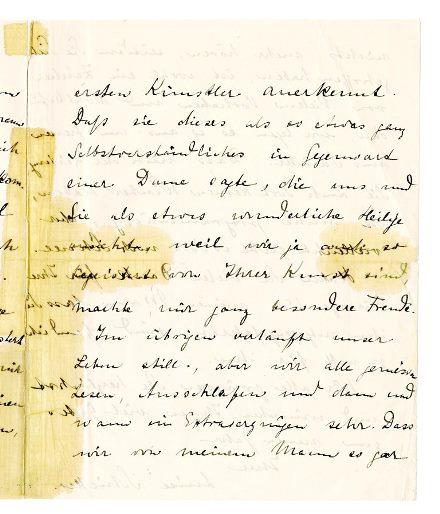 ersten Künstler anerkennt.
Daß sie dieses als so etwas ganz
Selbstverständliches in Gegenwart
einer Dame sagte, die uns und
Sie als etwas wunderliche Heilige
weil wir ja so
begeistert von Ihrer Kunst sind,
machte mir ganz besondere Freude.
Im übrigen verläuft unser
Leben still, aber wir alle geniessen
Lesen, Ausschlafen und dann und
wann ein Extravergnügen sehr. Dass
wir von meinem Mann so gar